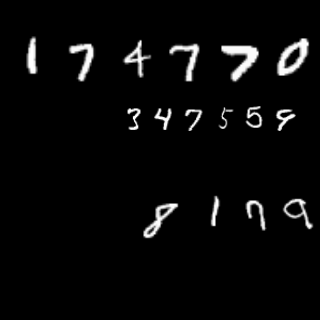 174770
347559
8179